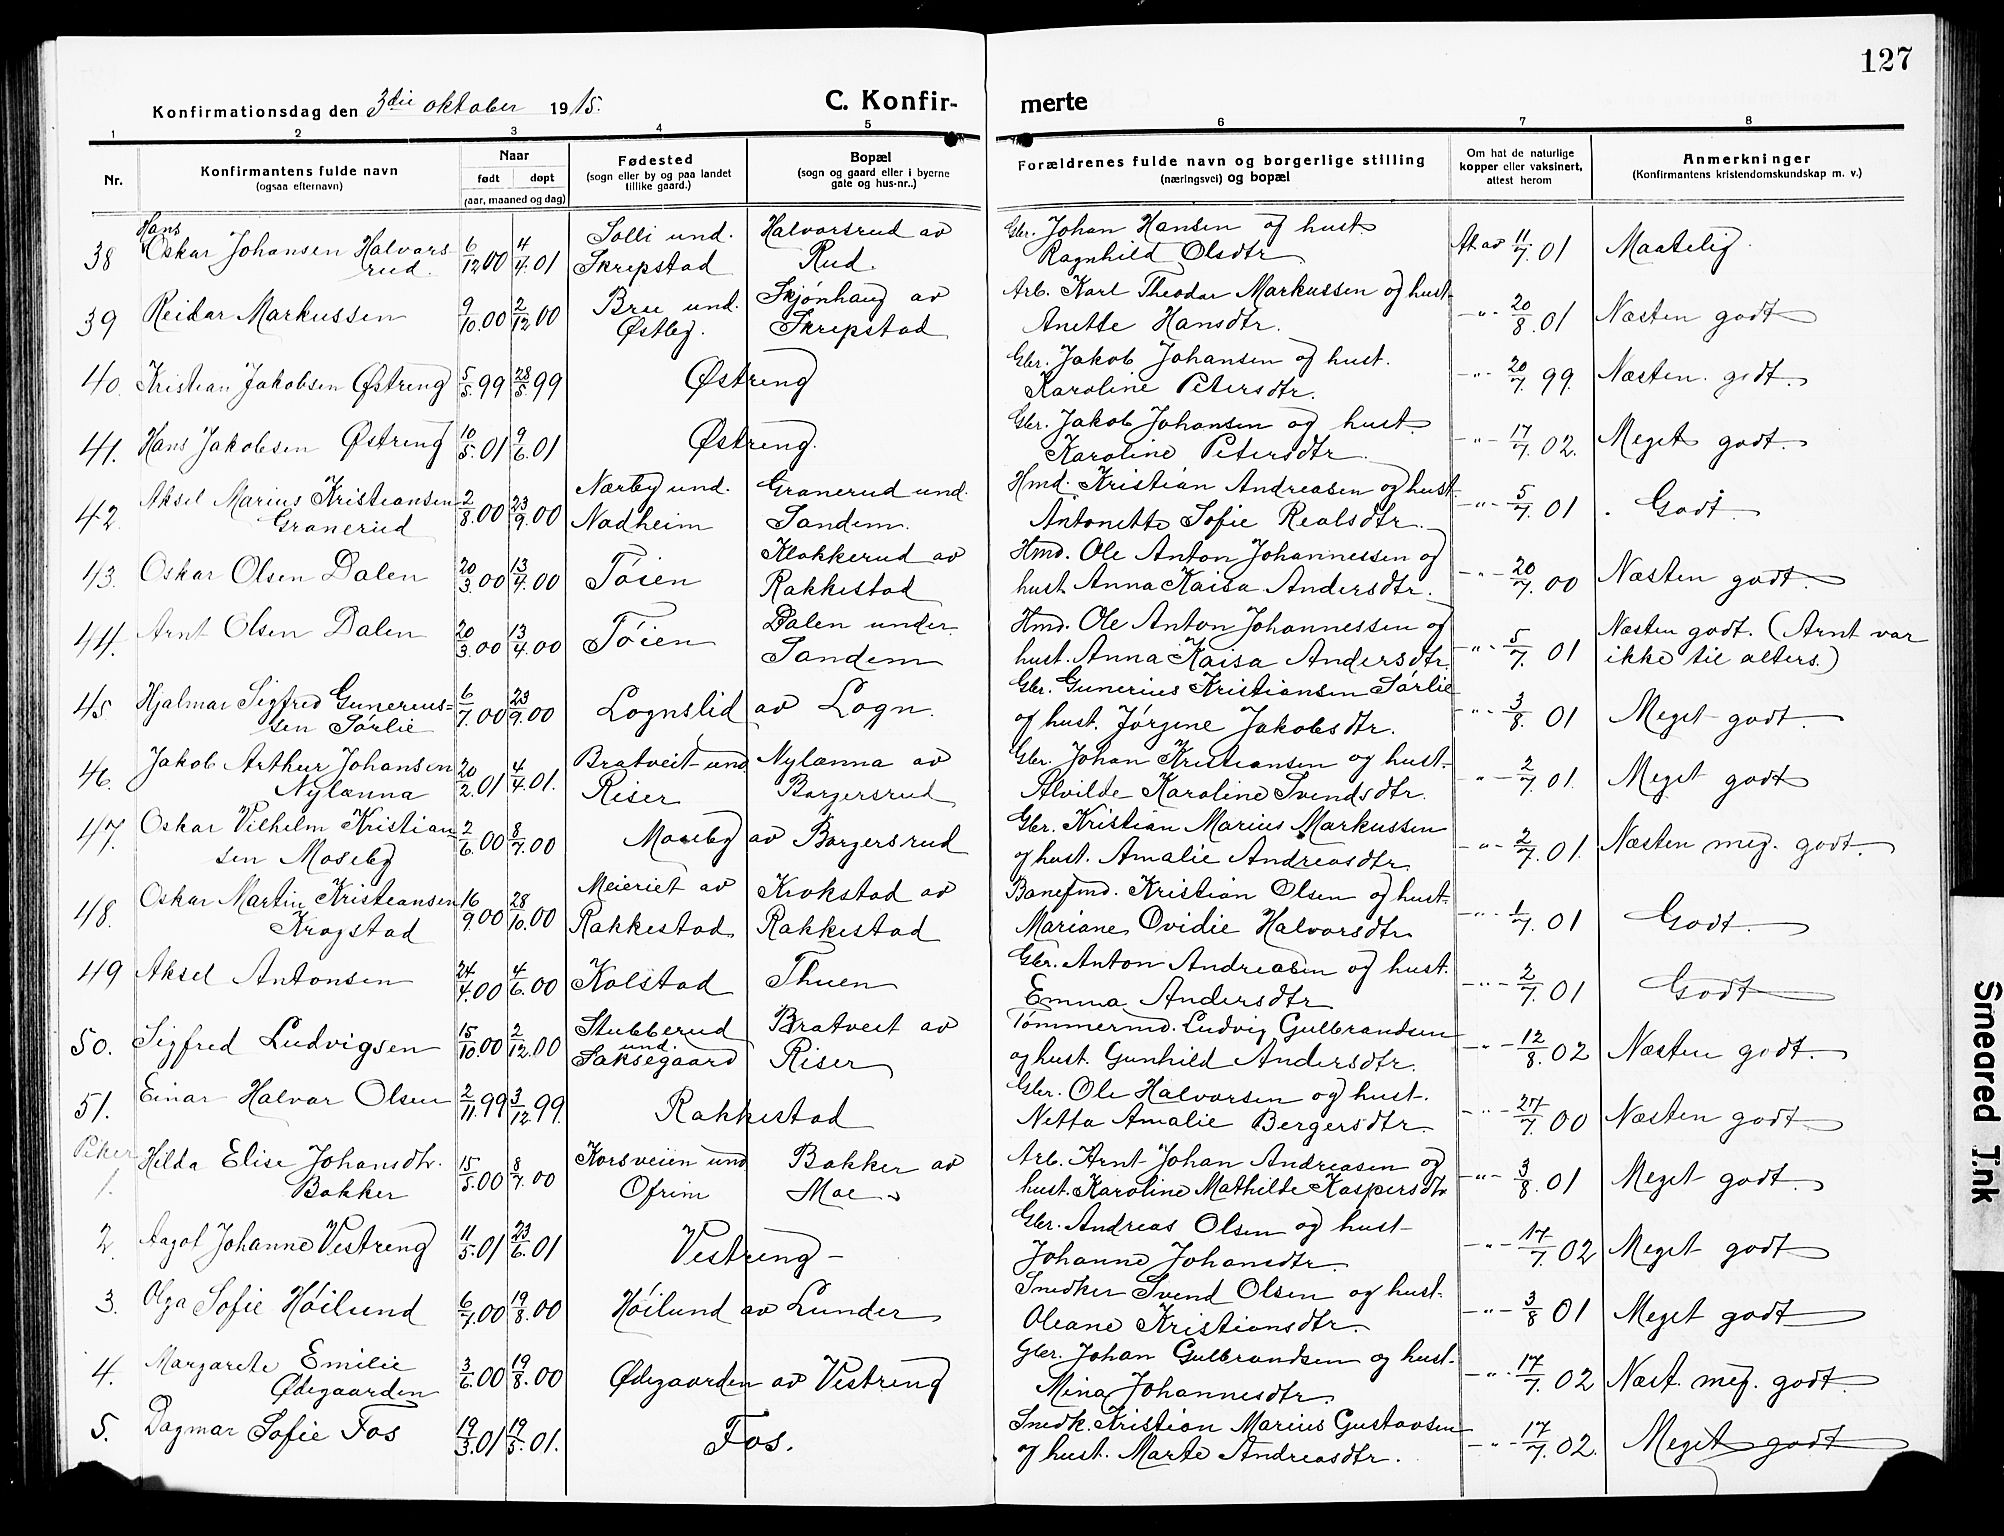 127
Konfirmationsdag den 3die oktober 1915.
C. Konfir-merte
1 2 3 4 5 6 7 8
Nr.
Konfirmantens fulde navn
(ogsaa efternavn)
Naar
født døpt
(aar, maaned og dag)
Fødested
(sogn eller by og paa landet
tillike gaard.)
Bopæl
(sogn og gaard eller i byerne
gate og hus-nr..)
Forældrenes fulde navn og borgerlige stilling
(næringsvei) og bopæl
Om hat de naturlige
kopper eller vaksinert,
attest herom
Anmerkninger
(Konfirmantens kristendomskundskap m. v.)
Hans Solli und. Halvorsrud av Gbr. Johan Hansen og hust.
38 Oskar Johansen Halvors- 6/12 00 4/4. 01 At av 11/7. 01 Maatelig.
rud. Skrepstad Rud. Ragnhild Olsdtr
39 Reidar Markussen 9/10. 00 2/12 00 Bree und. Skjønhaug av Arb. Karl Theodor Markussen og hust. -"- 20/8. 01 Næsten godt
Østby. Skrepstad Anette Hansdtr.
40. Kristian Jakobsen Østreng 5/5. 99 28/5. 99 Østreng Gbr. Jakob Johansen og hust. -"- 20/7. 99. Næsten godt.
Karoline Petersdtr.
41. Hans Jakobsen Østreng 10/5. 01 9/6. 01 Østreng. Gbr. Jakob Johansen og hust. -"- 17/7. 02. Meget godt.
Karoline Petersdtr.
42. Aksel Marius Kristiansen 2/8. 00 23/9. 00 Nærby und. Granerud und. Hmd. Kristian Andreasen og hust. -"- 5/7. 01 Godt.
Granerud Nadheim Sandem. Antonette Sofie Realsdtr.
43. Oskar Olsen Dalen 20/3. 00 13/4. 00 Tøien Klokkerud av Hmd. Ole Anton Johannessen og -"- 20/7. 00 Næsten godt.
Rakkestad hust. Anna Kaisa Andersdtr.
44. Arnt Olsen Dalen 20/3. 00 13/4. 00 Tøien Dalen under Hmd. Ole Anton Johannessen og -"- 5/7. 01 Næsten godt. (Arnt var
Sandem hust. Anna Kaisa Andersdtr. ikke til alters.)
45 Hjalmar Sigfred Gunerius= 6/7. 00 23/9. 00 Lognslid av Logn. Gbr. Gunerius Kristiansen Sørlie -"- 3/8. 01 Meget godt.
sen Sørlie og hust. Jørgine Jakobsdtr.
46. Jakob Arthur Johansen 20/2. 01 4/4. 01. Bratveit und. Nylænna av Gbr. Johan Kristiansen og hust. -"- 2/7. 01. Meget godt
Nylænna Riser Borgersrud Alvilde Karoline Svendsdtr.
47. Oskar Vilhelm Kristian 2/6. 00 8/7. 00 Moseby av Borgersrud Gbr. Kristian Marius Markussen -"- 2/7. 01. Næsten meg. godt.
sen Moseby og hust. Amalie Andreasdtr.
48. Oskar Martin Kristiansen 16/9. 00 28/10. 00 Meieriet av Krokstad av Banefmd. Kristian Olsen og hust. -"- 1/7. 01 Godt
Krogstad Rakkestad Rakkestad Mariane Ovidie Halvorsdtr
49 Aksel Antonsen 24/4. 00 4/6. 00 Kolstad Thuen Gbr. Anton Andreasen og hust. -"- 2/7. 01 Godt
Emma Andersdtr
50. Sigfred Ludvigsen 15/10. 00 2/12. 00 Stubberud Bratveit av Tømmermd. Ludvig Gulbrandsen -"- 12/8. 02 Næsten godt.
und. Saksegaard Riser og hust. Gunhild Andersdtr.
51. Einar Halvar Olsen 2/11. 99 3/12. 99. Rakkestad Gbr. Ole Halvorsen og hust. -"- 27/7. 00 Næsten godt.
Netta Amalie Bergersdtr.
Piker
1. Hilda Elise Johansdtr. 15/5. 00 8/7. 00 Korsveien und Bakker av Arb. Arnt Johan Andreasen og -"- 3/8. 01 Meget godt.
Bakker Ofrim Moe hust. Karoline Mathilde Kaspersdtr
2. Aagot Johanne Vestreng 11/5. 01 23/6. 01 Vestreng Gbr. Andreas Olsen og hust. -"- 17/7. 02 Meget godt
Johanne Johansdtr.
3. Olga Sofie Høilund 6/7. 00 19/8. 00 Høilund av Lunder Snedker Svend Olsen og hust. -"- 3/8 01 Meget godt
Oleane Kristiansdtr.
4. Margarete Emilie 3/6. 00 19/8. 00 Ødegaarden av Vestreng Gbr. Johan Gulbrandsen og hust. -"- 17/7. 02 Næst. meg. godt.
Ødegaarden Mina Johannesdtr.
5. Dagmar Sofie Fos 19/3. 01 19/5. 01. Fos. Snedk. Kristian Marius Gustavsen -"- 17/7. 02. Meget godt
og hust. Marte Andreasdtr.
Smeared Ink